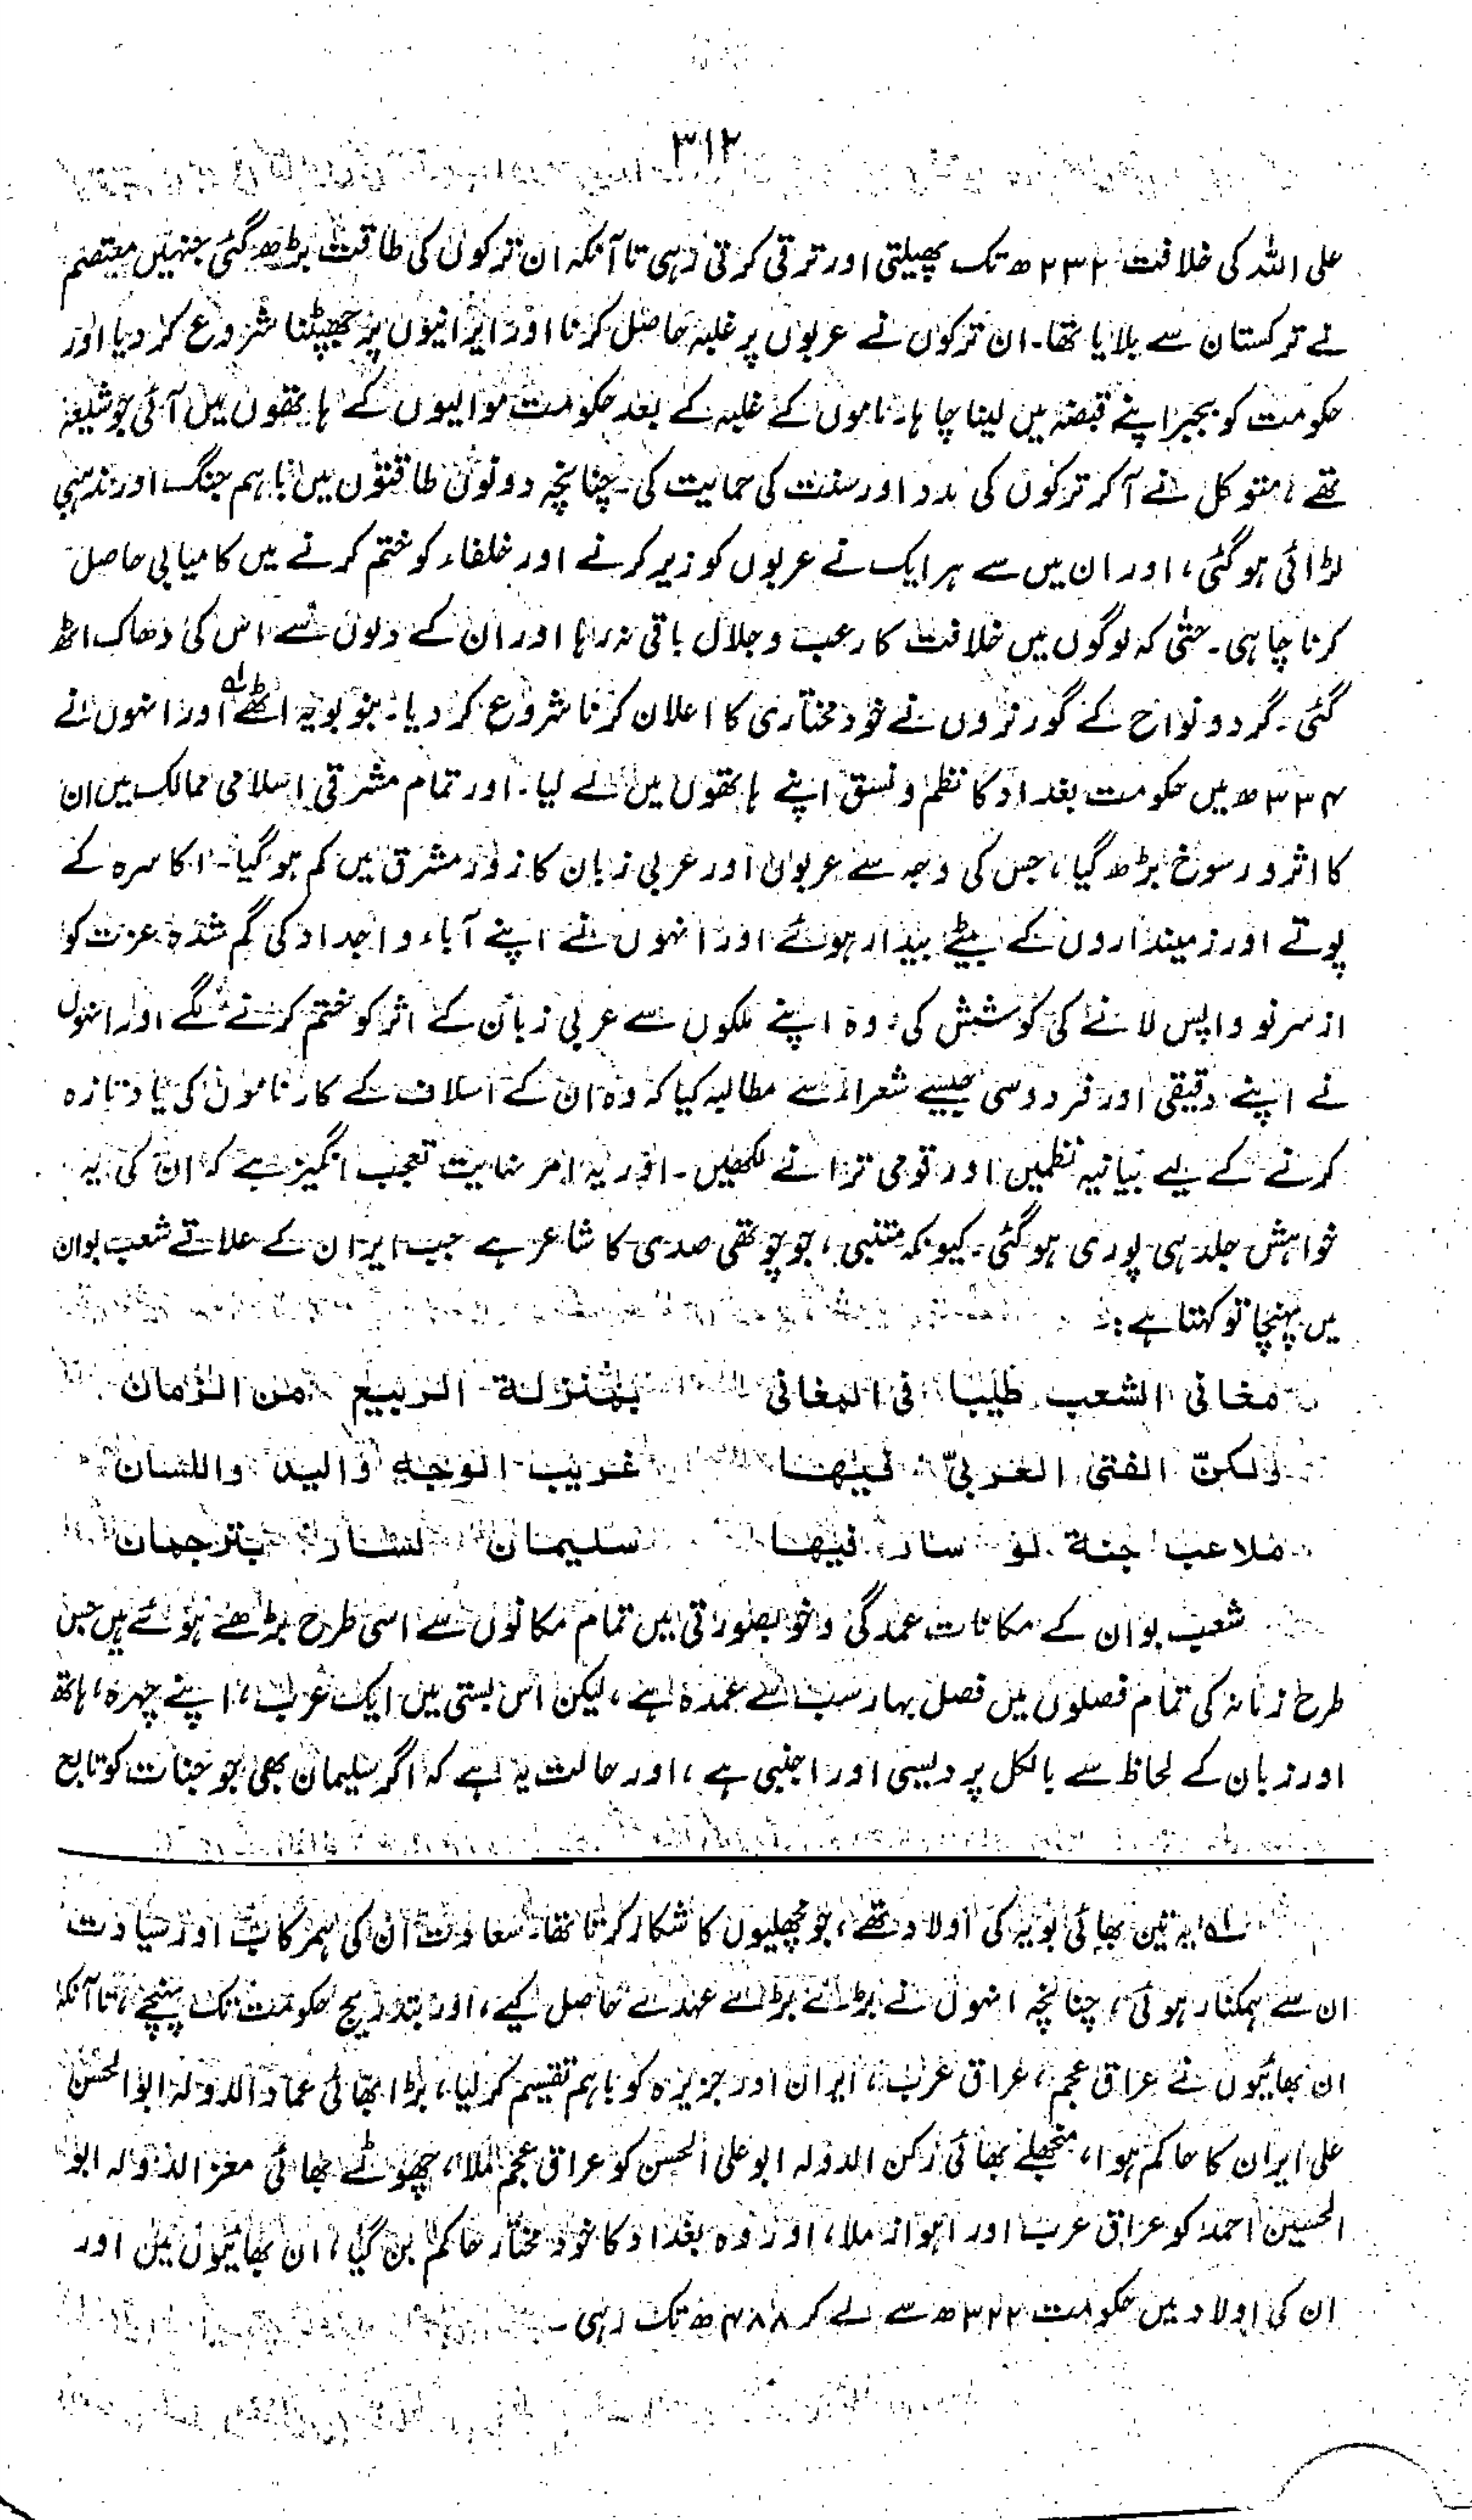 ۳۱۲
علی اللہ کی خلافت ۲۳۲ھ تک پھیلتی اور ترقی کرتی رہی تا آنکہ ان ترکوں کی طاقت بڑھ گئی جنہیں معتصم
نے ترکستان سے بلایا تھا۔ ان ترکوں نے عربوں پر غلبہ حاصل کرنا اور ایرانیوں پر جھپٹنا شروع کر دیا اور
حکومت کو بجبر اپنے قبضہ میں لینا چاہا۔ ماموں کے غلبہ کے بعد حکومت موالیوں کے ہاتھوں میں آئی جو شیعہ
تھے، متوکل نے آ کر ترکوں کی مدد اور سنت کی حمایت کی۔ چنانچہ دونوں طاقتوں میں باہم جنگ اور مذہبی
لڑائی ہو گئی، اور ان میں سے ہر ایک نے عربوں کو زیر کرنے اور خلفاء کو ختم کرنے میں کامیابی حاصل
کرنا چاہی۔ حتٰی کہ لوگوں میں خلافت کا رعب و جلال باقی نہ رہا اور ان کے دلوں سے اس کی دھاک اٹھ
گئی۔ گرد و نواح کے گورنروں نے خود مختاری کا اعلان کرنا شروع کر دیا۔ بنو بویہ اٹھے لہ اور انہوں نے
۳۳۴ھ میں حکومت بغداد کا نظم و نسق اپنے ہاتھوں میں لے لیا۔ اور تمام مشرقی اسلامی ممالک میں ان
کا اثر و رسوخ بڑھ گیا، جس کی وجہ سے عربوں اور عربی زبان کا زور مشرق میں کم ہو گیا۔ اکاسرہ کے
پوتے اور زمینداروں کے بیٹے بیدار ہوئے اور انہوں نے اپنے آباء و اجداد کی گم شدہ عزت کو
از سر نو واپس لانے کی کوشش کی، وہ اپنے ملکوں سے عربی زبان کے اثر کو ختم کرنے لگے اور انہوں
نے اپنے دقیقی اور فردوسی جیسے شعراء سے مطالبہ کیا کہ وہ ان کے اسلاف کے کارناموں کی یاد تازہ
کرنے کے لیے بیانیہ نظمیں اور قومی ترانے لکھیں۔ اور یہ امر نہایت تعجب انگیز ہے کہ ان کی یہ
خواہش جلد ہی پوری ہو گئی۔ کیونکہ متنبی، جو چوتھی صدی کا شاعر ہے جب ایران کے علاقے شعب بوان
میں پہنچا تو کہتا ہے:۔
مغانی الشعب طیبا فی المغانی بمنزلة الربیع من الزمان
ولکنّ الفتی العربیّ فیھا غریب الوجه والید واللسان
ملاعب جنة لو سار فیھا سلیمان لسار بترجمان
شعب بوان کے مکانات عمدگی و خوبصورتی میں تمام مکانوں سے اسی طرح بڑھے ہوئے ہیں جس
طرح زمانہ کی تمام فصلوں میں فصل بہار سب سے عمدہ ہے، لیکن اس بستی میں ایک عرب، اپنے چہرہ، ہاتھ
اور زبان کے لحاظ سے بالکل پردیسی اور اجنبی ہے، اور حالت یہ ہے کہ اگر سلیمان بھی جو جنات کو تابع
لہ یہ تین بھائی بویہ کی اولاد تھے، جو مچھلیوں کا شکار کرتا تھا۔ سعادت ان کی ہمرکاب اور سیادت
ان سے ہمکنار ہوئی، چنانچہ انہوں نے بڑے بڑے عہدے حاصل کیے، اور بتدریج حکومت تک پہنچے، تا آنکہ
ان بھائیوں نے عراق عجم، عراق عرب، ایران اور جزیرہ کو باہم تقسیم کر لیا، بڑا بھائی عماد الدولہ ابوالحسن
علی ایران کا حاکم ہوا، منجھلے بھائی رکن الدولہ ابو علی الحسن کو عراق عجم ملا، چھوٹے بھائی معز الدولہ ابو
الحسین احمد کو عراق عرب اور اہواز ملا، اور وہ بغداد کا خود مختار حاکم بن گیا، ان بھائیوں میں اور
ان کی اولاد میں حکومت ۳۲۲ھ سے لے کر ۴۸۸ھ تک رہی۔